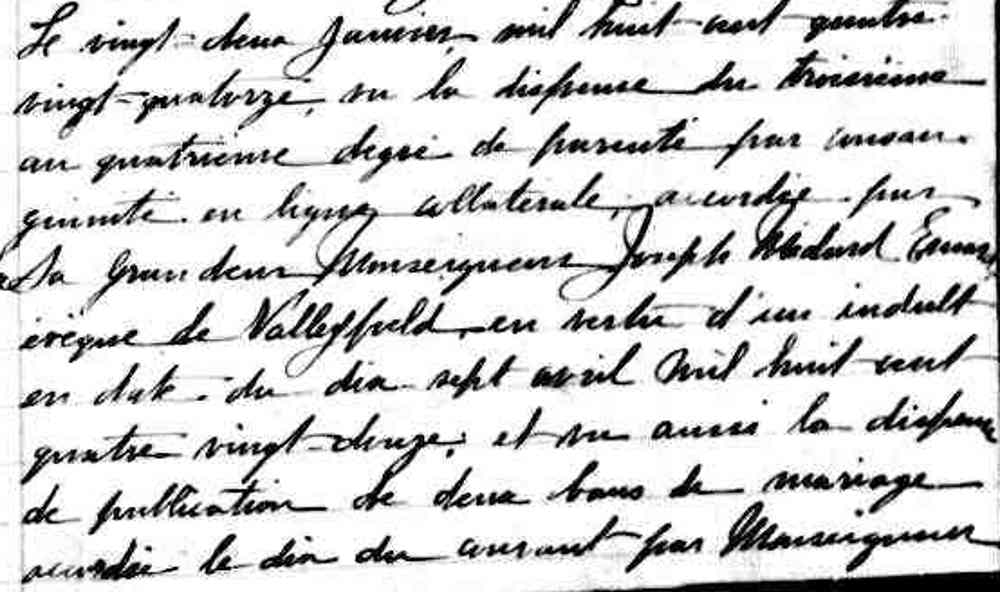 Le vingt-deux Janvier mil huit cent quatre-
vingt-quatorze, vu la dispense du troisième
au quatrième degré de parenté par consan-
guinité en ligne collatérale, accordée par
Sa Grandeur Monseigneur Joseph Médard Emard
évêque de Valleyfield, en vertu d'un indult
en date du dix sept avril mil huit cent
quatre vingt-douze; et vu aussi la dispense
de publication de deux bans de mariage
accordée le dix du courant par Monseigneur